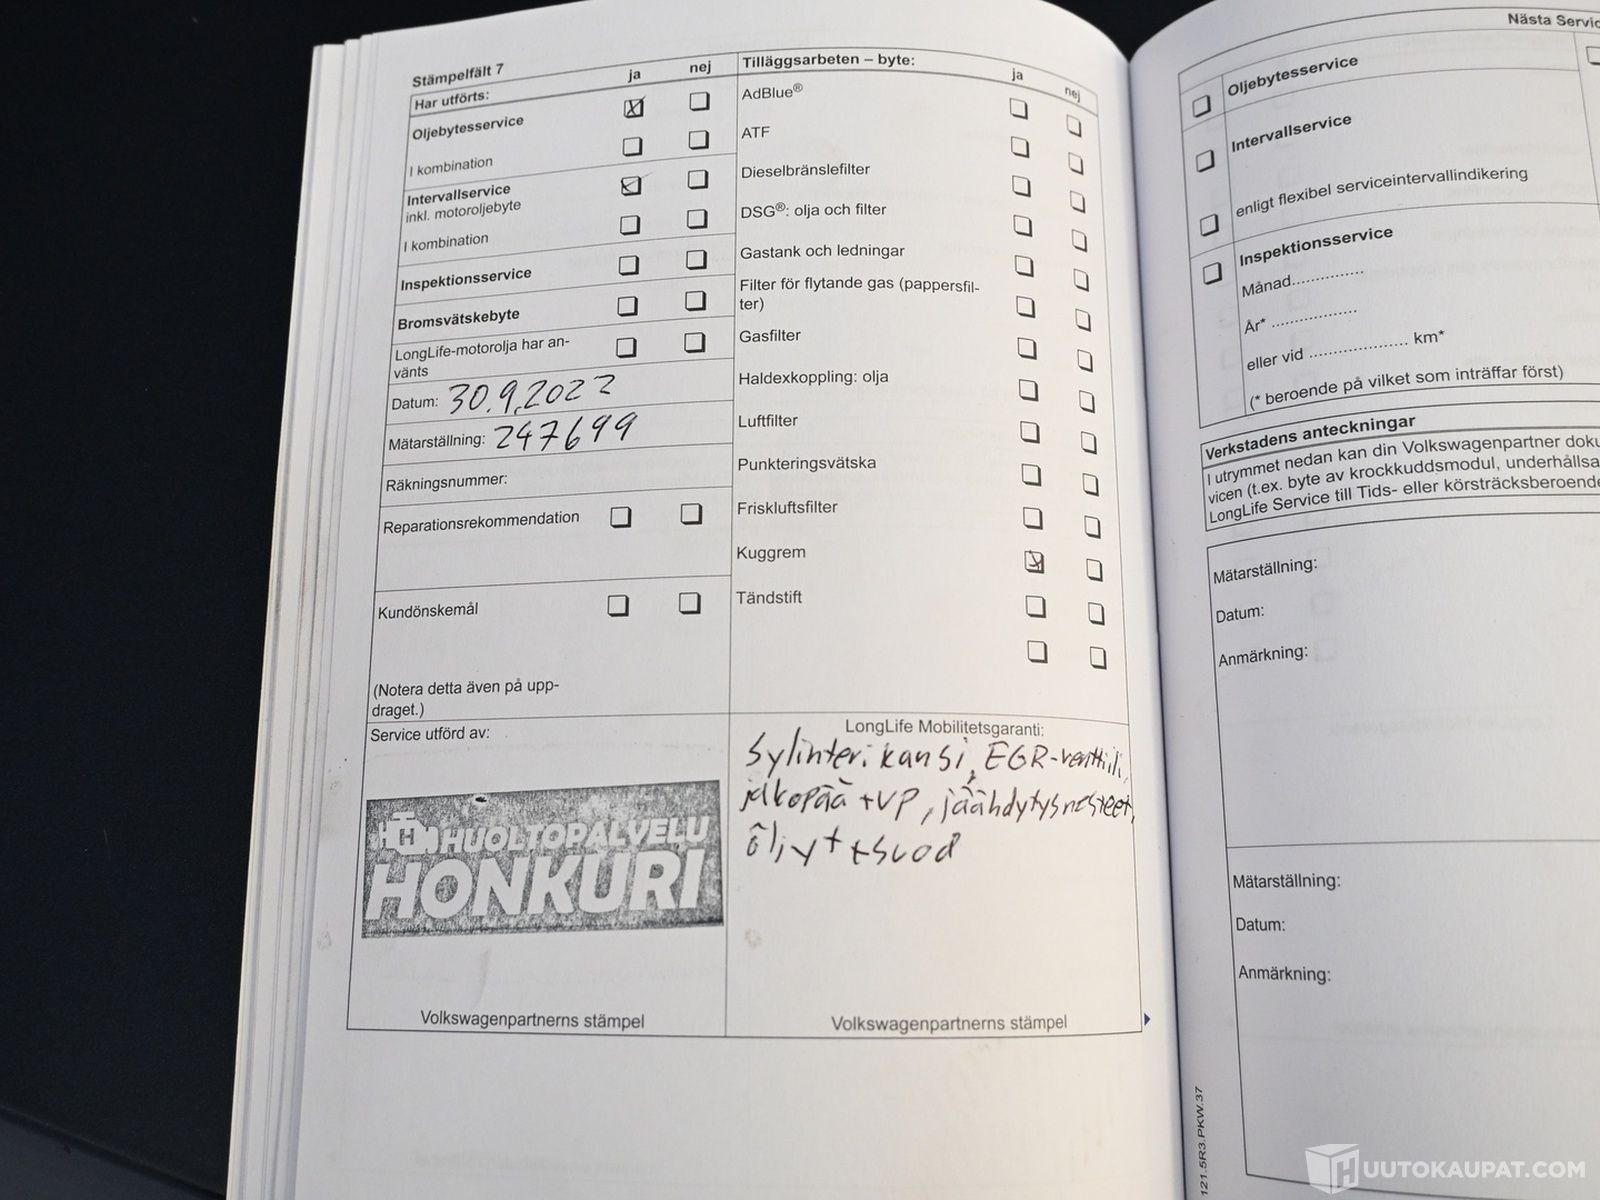 Stämpelfält 7
Har utförts: ja nej
Oljebytesservice
I kombination
Intervallservice
inkl. motoroljebyte
I kombination
Inspektionsservice
Bromsvätskebyte
LongLife-motorolja har an-
vänts
Datum: 30.9.2022
Mätarställning: 247699
Räkningsnummer:
Reparationsrekommendation
Kundönskemål
(Notera detta även på upp-
draget.)
Service utförd av:
HUOLTOPALVELU
HONKURI
Volkswagenpartnerns stämpel
Tilläggsarbeten – byte:
ja nej
AdBlue®
ATF
Dieselbränslefilter
DSG®: olja och filter
Gastank och ledningar
Filter för flytande gas (pappersfil-
ter)
Gasfilter
Haldexkoppling: olja
Luftfilter
Punkteringsvätska
Friskluftsfilter
Kuggrem
Tändstift
LongLife Mobilitetsgaranti:
Sylinterikansi, EGR-venttiili,
jakopää +VP, jäähdytysnesteet,
öljyt + suod
Volkswagenpartnerns stämpel
Nästa Servic
Oljebytesservice
Intervallservice
enligt flexibel serviceintervallindikering
Inspektionsservice
Månad..............
År* .................
eller vid .................... km*
(* beroende på vilket som inträffar först)
Verkstadens anteckningar
I utrymmet nedan kan din Volkswagenpartner doku
vicen (t.ex. byte av krockkuddsmodul, underhållsa
LongLife Service till Tids- eller körsträcksberoende
Mätarställning:
Datum:
Anmärkning:
Mätarställning:
Datum:
Anmärkning:
121.5R3.PKW.37
HUUTOKAUPAT.COM